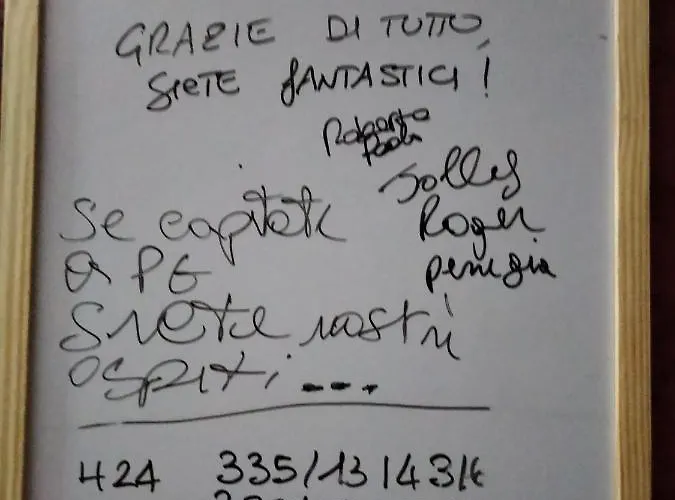 GRAZIE DI TUTTO,
SIETE FANTASTICI!
Roberto
Paola
Jolly
Roger
perugia
Se capitate
a PG
siete nostri
ospiti ---.
424 335/13143